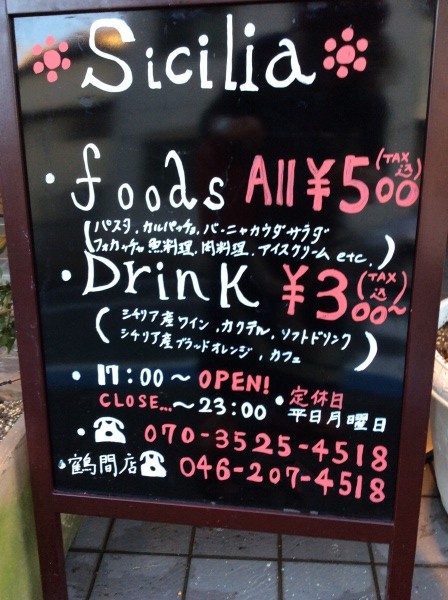 Sicilia
・foods All ¥500 (TAX込)
(パスタ、カルパッチョ、バーニャカウダサラダ
フォカッチャ魚料理、肉料理、アイスクリーム etc.)
・Drink ¥300~ (TAX込)
(シチリア産ワイン、カクテル、ソフトドリンク
シチリア産ブラッドオレンジ、カフェ)
・17:00～OPEN!
CLOSE...～23:00
・定休日
平日月曜日
・☎ 070-3525-4518
・鶴間店☎ 046-207-4518